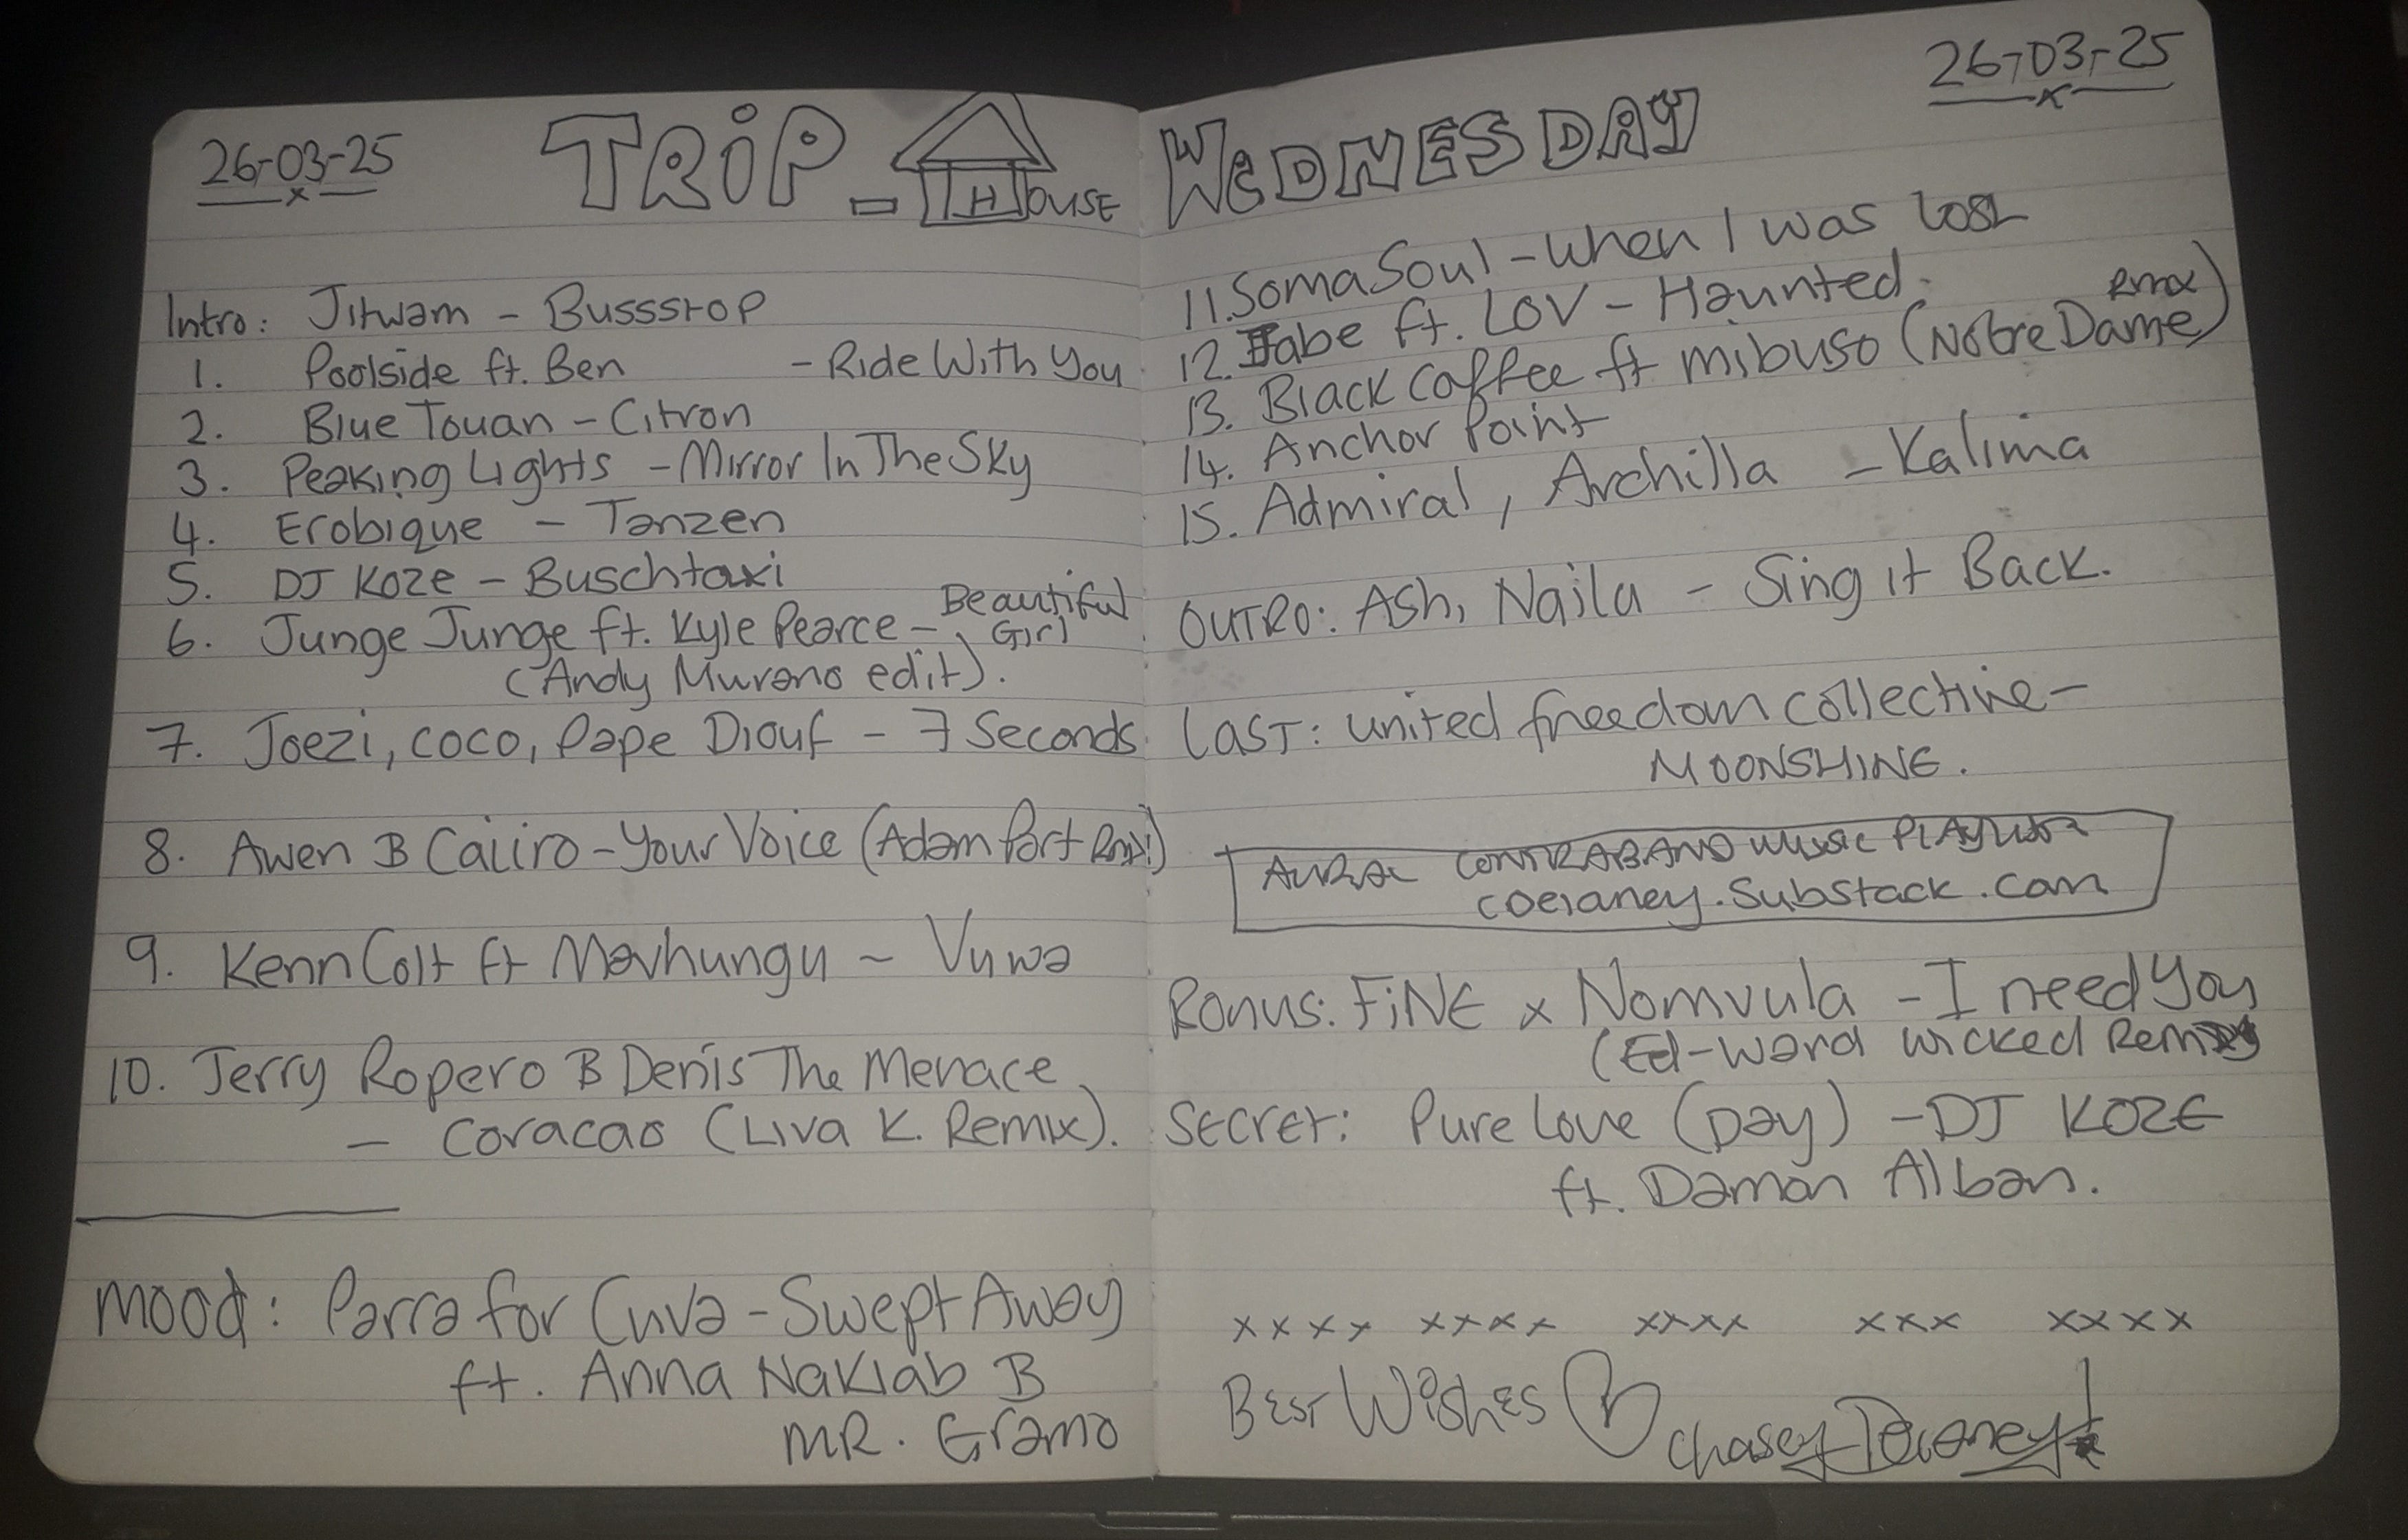 26-03-25
TRiP - HOUSE
Intro: Jitwam - Bussstop
1. Poolside ft. Ben - Ride With You
2. Blue Touan - Citron
3. Peaking Lights - Mirror In The Sky
4. Erobique - Tanzen
5. DJ Koze - Buschtaxi
6. Junge Junge ft. Kyle Pearce - Beautiful Girl
(Andy Murano edit).
7. Joezi, coco, Pape Diouf - 7 Seconds
8. Awen B Caiiro - Your Voice (Adam Port Rmx!)
9. Kenn Colt ft Mavhungu ~ Vuwa
10. Jerry Ropero B Denis The Menace
- Coracao (Liva K. Remix).
Mood: Parra for Cuva - Swept Away
ft. Anna Naklab B
MR. Gramo
26-03-25
WeDNESDAY
11. SomaSoul - When I was lost
12. Fabe ft. LOV - Haunted.
13. Black Coffee ft mibuso (Notre Dame Rmx)
14. Anchor Point
15. Admiral, Archilla - Kalima
OUTRO: Ash, Naila - Sing it Back.
LAST: united freedom collective -
MOONSHINE.
AURAL CONTRABAND MUSIC PLAYLIST
.Substack.com
Bonus: FiNE x Nomvula - I need You
(Ed-Ward wicked Remix)
SECRET: Pure Love (Day) - DJ KOZE
ft. Damon Alban.
xxxx xxxx xxxx xxx xxxx
BEST WiSHES